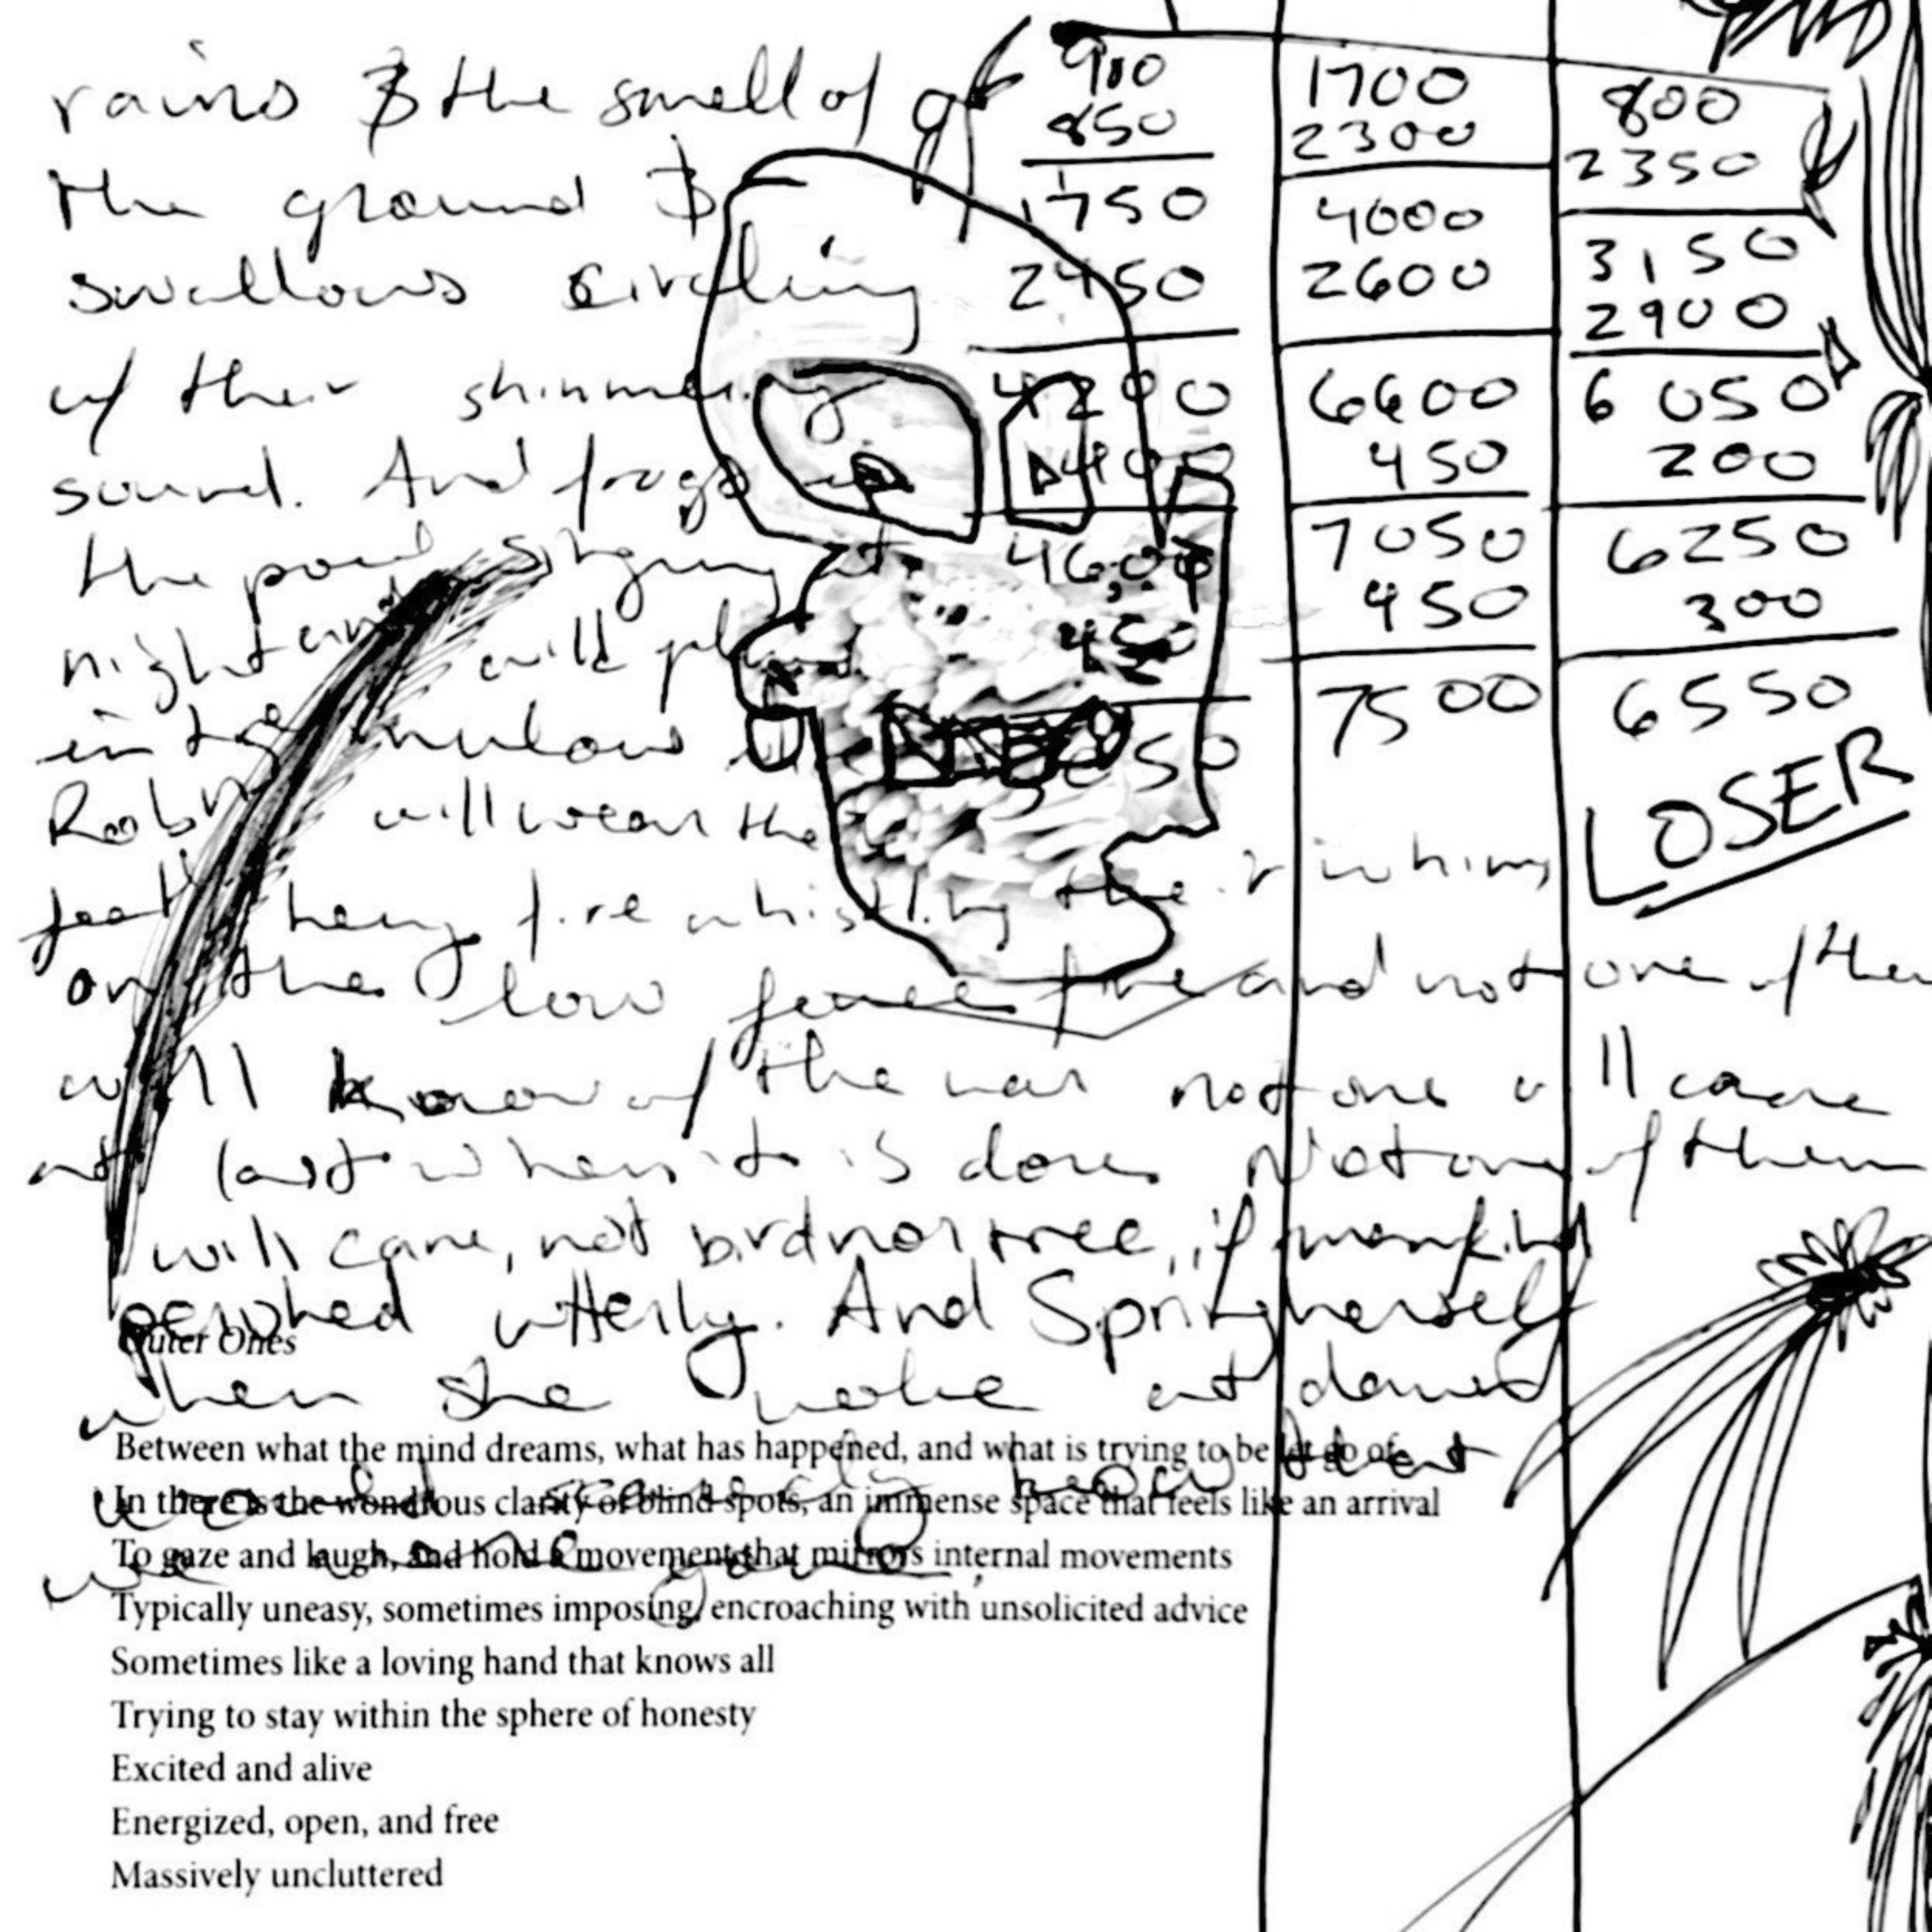 rains & the smell of
the ground &
swallows circling
w/ their shimmering
sound. And frogs in
the pool singing at
night and will
in tremulous
Robins will wear the
feathery fire whistling their whims
on the low fence fire and not one of them
will know of the war not one will care
at last when it is done Not one of them
will care, not bird nor tree, if mankind
perished utterly. And Spring herself
when she woke at dawn
would scarcely know that
we were gone.
900
850
1750
2450
4200
400
4600
450
5050
1700
2300
4000
2600
6600
450
7050
450
7500
800
2350
3150
2900
6050
200
6250
300
6550
LOSER
Outer Ones
Between what the mind dreams, what has happened, and what is trying to be let go of
In there is the wondrous clarity of blind spots, an immense space that feels like an arrival
To gaze and laugh, and hold a movement that mirrors internal movements
Typically uneasy, sometimes imposing, encroaching with unsolicited advice
Sometimes like a loving hand that knows all
Trying to stay within the sphere of honesty
Excited and alive
Energized, open, and free
Massively uncluttered